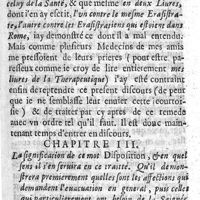 celuy de la Santé, & que mesme en deux Livres,
dont i'en ay escrit, l'vn contre le mesme Erasistra-
te, l'autre contre les Erasistratiens qui estoiẽt dans
Rome, i'ay demonstré ce dont il a mal entendu.
Mais comme plusieurs Medecins de mes amis
me pressoient de leurs prieres (outre ces pares-
seux comme ie croy de lire entierement mes
liures de la Therapeutique) i'ay esté contraint
enfin de reprendre ce present discours, de crain-
te qu'il ne semblasse leur enuier cette courtoi-
sie) & de traiter par cy apres de ce remede
auec vn ordre tel qu'il faut. Il est donc main-
tenant temps d'entrer en discours.
CHAPITRE III.
La signification de ce mot Disposition, & en quel
sens il s'en seruira en ce traité. Qu'il demon-
strera premierement quelles sont les affections qui
demandent l'euacuation en general, puis celles
qui particulierement ont besoin de la Saignée